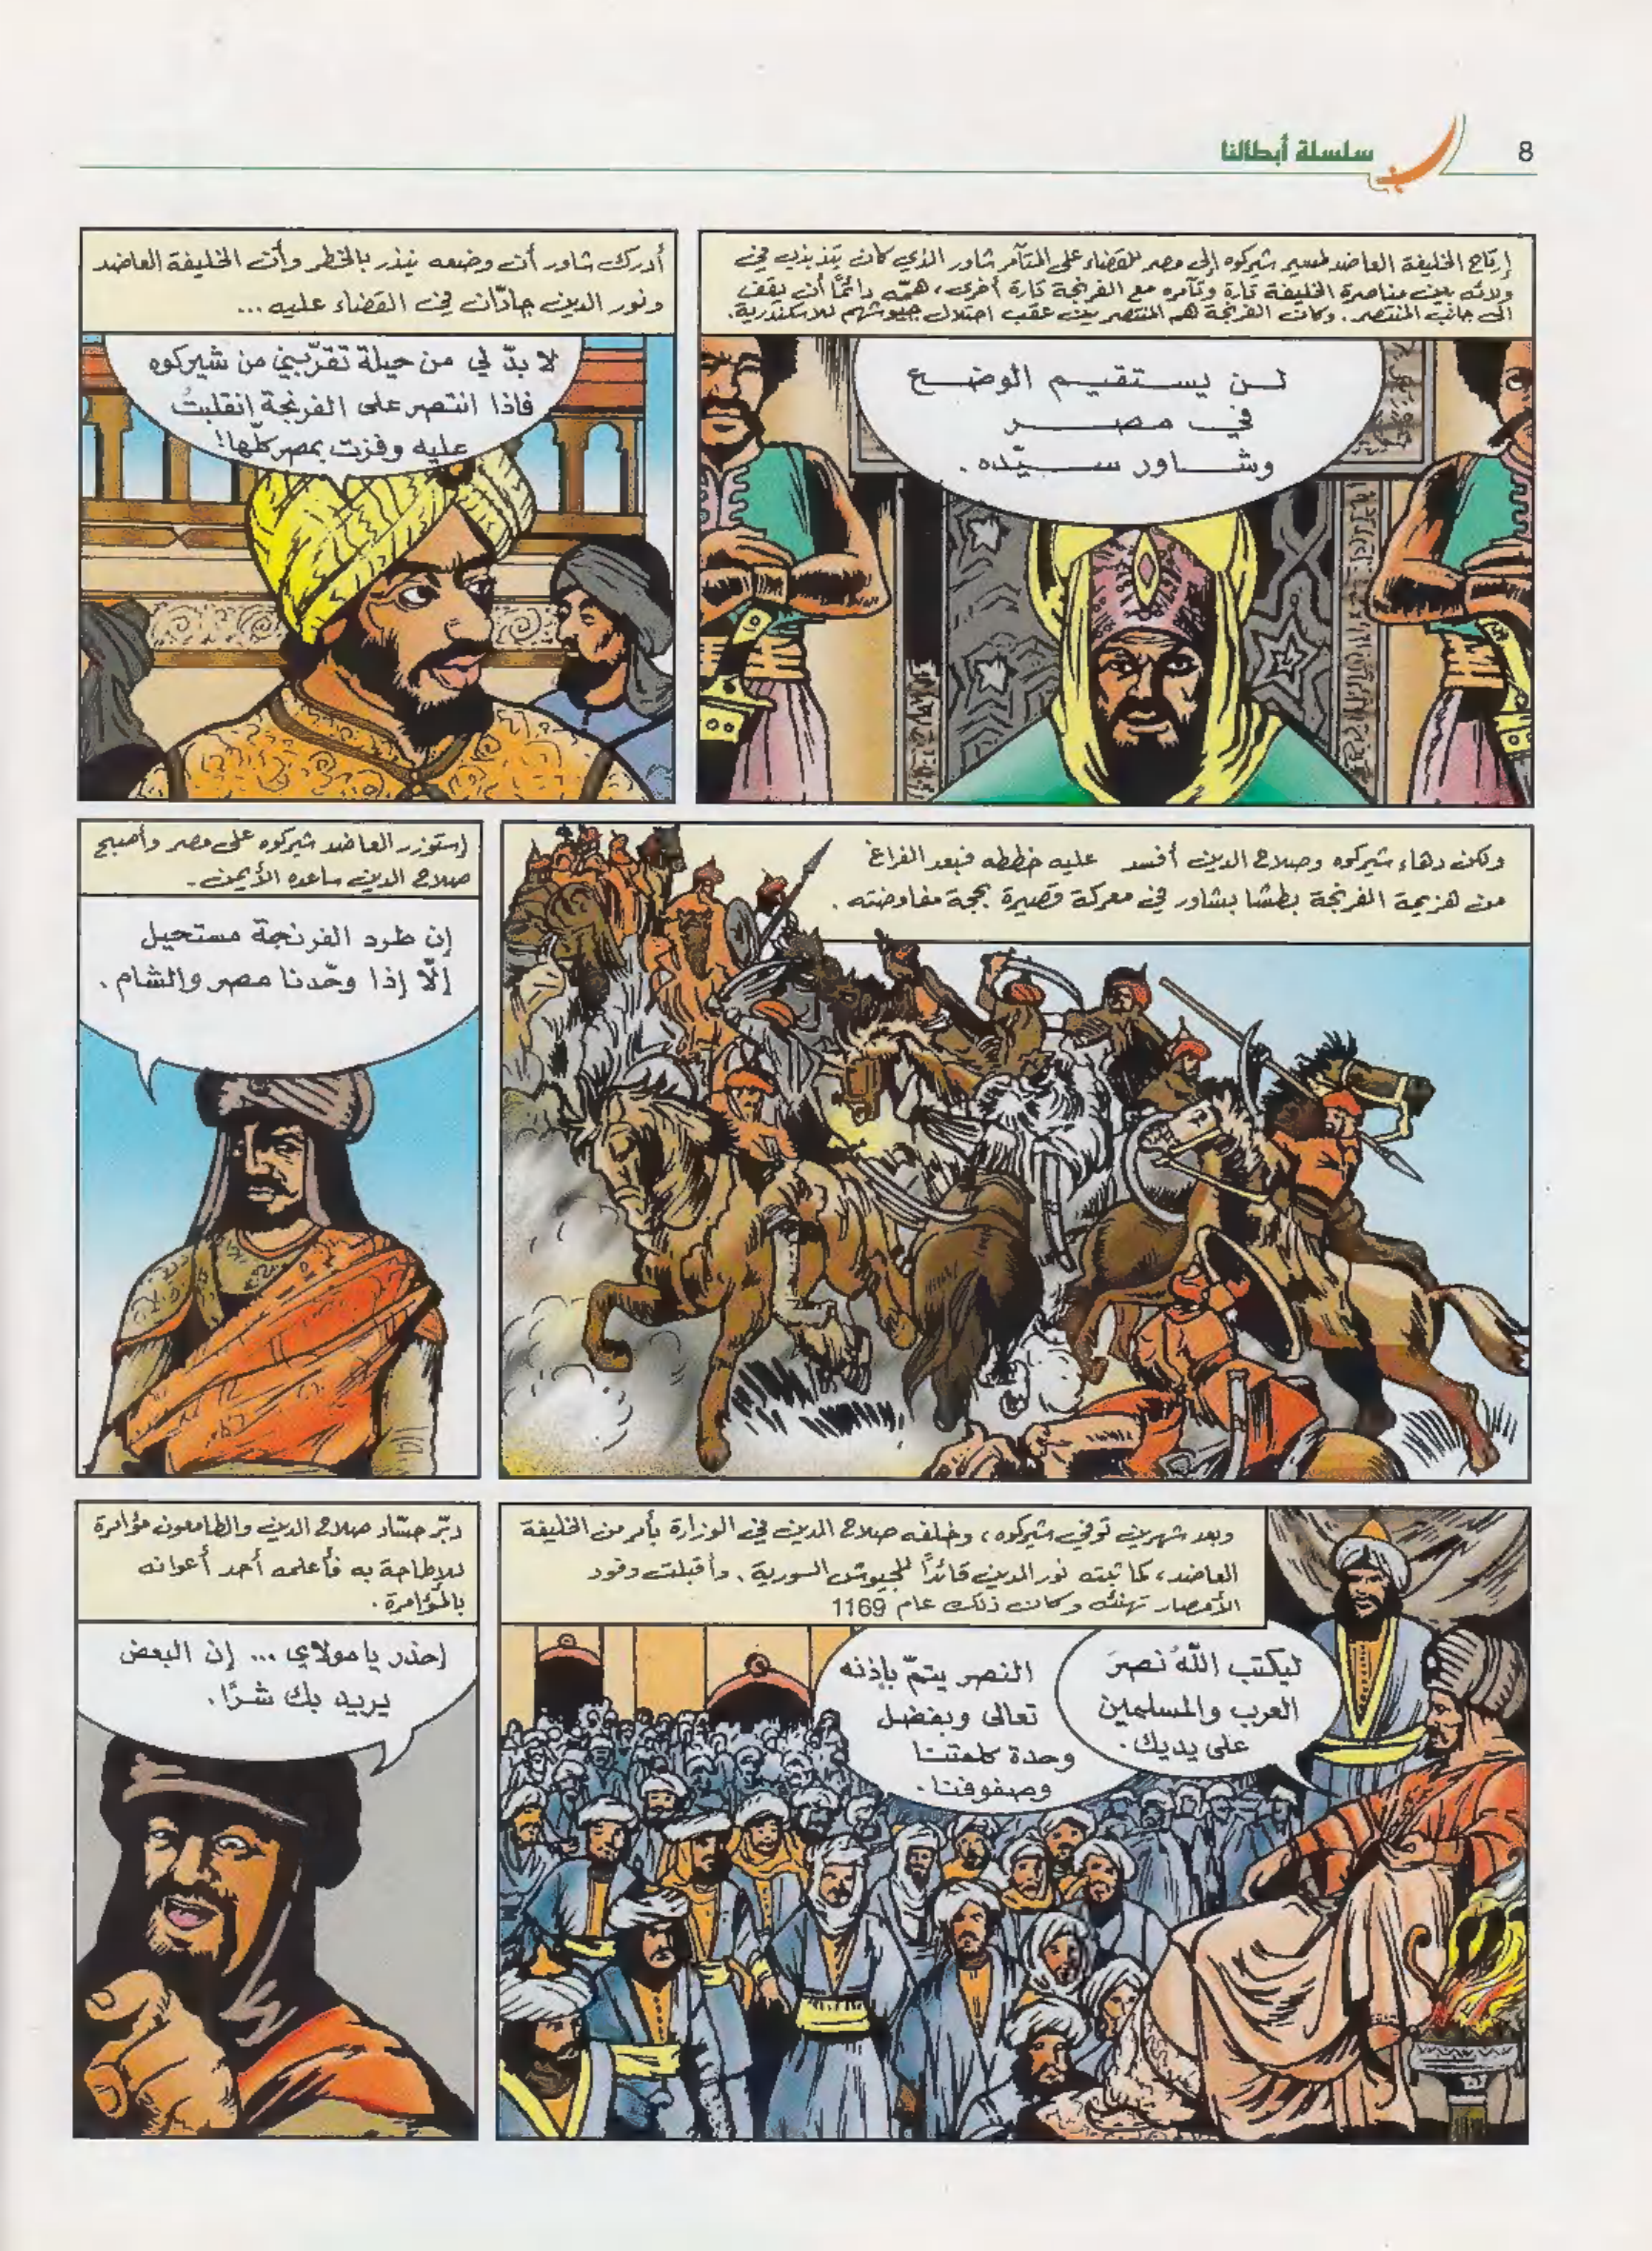 8
سلسلة أبطالنا
إرتاح الخليفة العاضد لمسير شيركوه إلى مصر للقضاء على المتآمر شاور الذي كان يتذبذب في
ولائه بين مناصرة الخليفة تارة وتآمره مع الفرنجة تارة أخرى، همّه دائمًا أن يقف
الى جانب المنتصر. وكان الفرنجة هم المنتصرين عقب احتلال جيوشهم للاسكندرية.
لن يستقيم الوضع
في مصر
وشاور سيّده.
أدرك شاور أن وضعه ينذر بالخطر وأن الخليفة العاضد
ونور الدين جادّان في القضاء عليه...
لا بدّ لي من حيلة تقرّبني من شيركوه
فاذا انتصر على الفرنجة انقلبتُ
عليه وفزت بمصر كلّها!
ولكن دهاء شيركوه وصلاح الدين أفسد عليه خططه فبعد الفراغ
من هزيمة الفرنجة بطشا بشاور في معركة قصيرة بحجة مفاوضته.
إستوزر العاضد شيركوه على مصر وأصبح
صلاح الدين ساعده الأيمن.
إن طرد الفرنجة مستحيل
إلّا إذا وحّدنا مصر والشام.
وبعد شهرين توفي شيركوه، وخلفه صلاح الدين في الوزارة بأمر من الخليفة
العاضد، كما ثبته نور الدين قائدًا للجيوش السورية. وأقبلت وفود
الأمصار تهنئه وكان ذلك عام 1169
ليكتب اللّهُ نصرَ
العرب والمسلمين
على يديك.
النصر يتمّ بإذنه
تعالى وبفضل
وحدة كلمتنا
وصفوفنا.
دبّر حسّاد صلاح الدين والطامعون مؤامرة
للإطاحة به فأعلمه أحد أعوانه
بالمؤامرة.
إحذر يا مولاي... إن البعض
يريد بك شرًا.